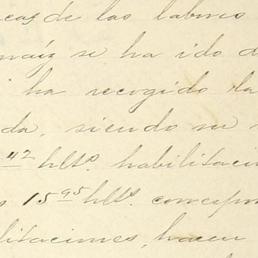 de las labores
maíz se ha ido
ha recogido la
siendo su
42 hlts. habilitaci
15 95 hlts. corresp
litaciones, hacen